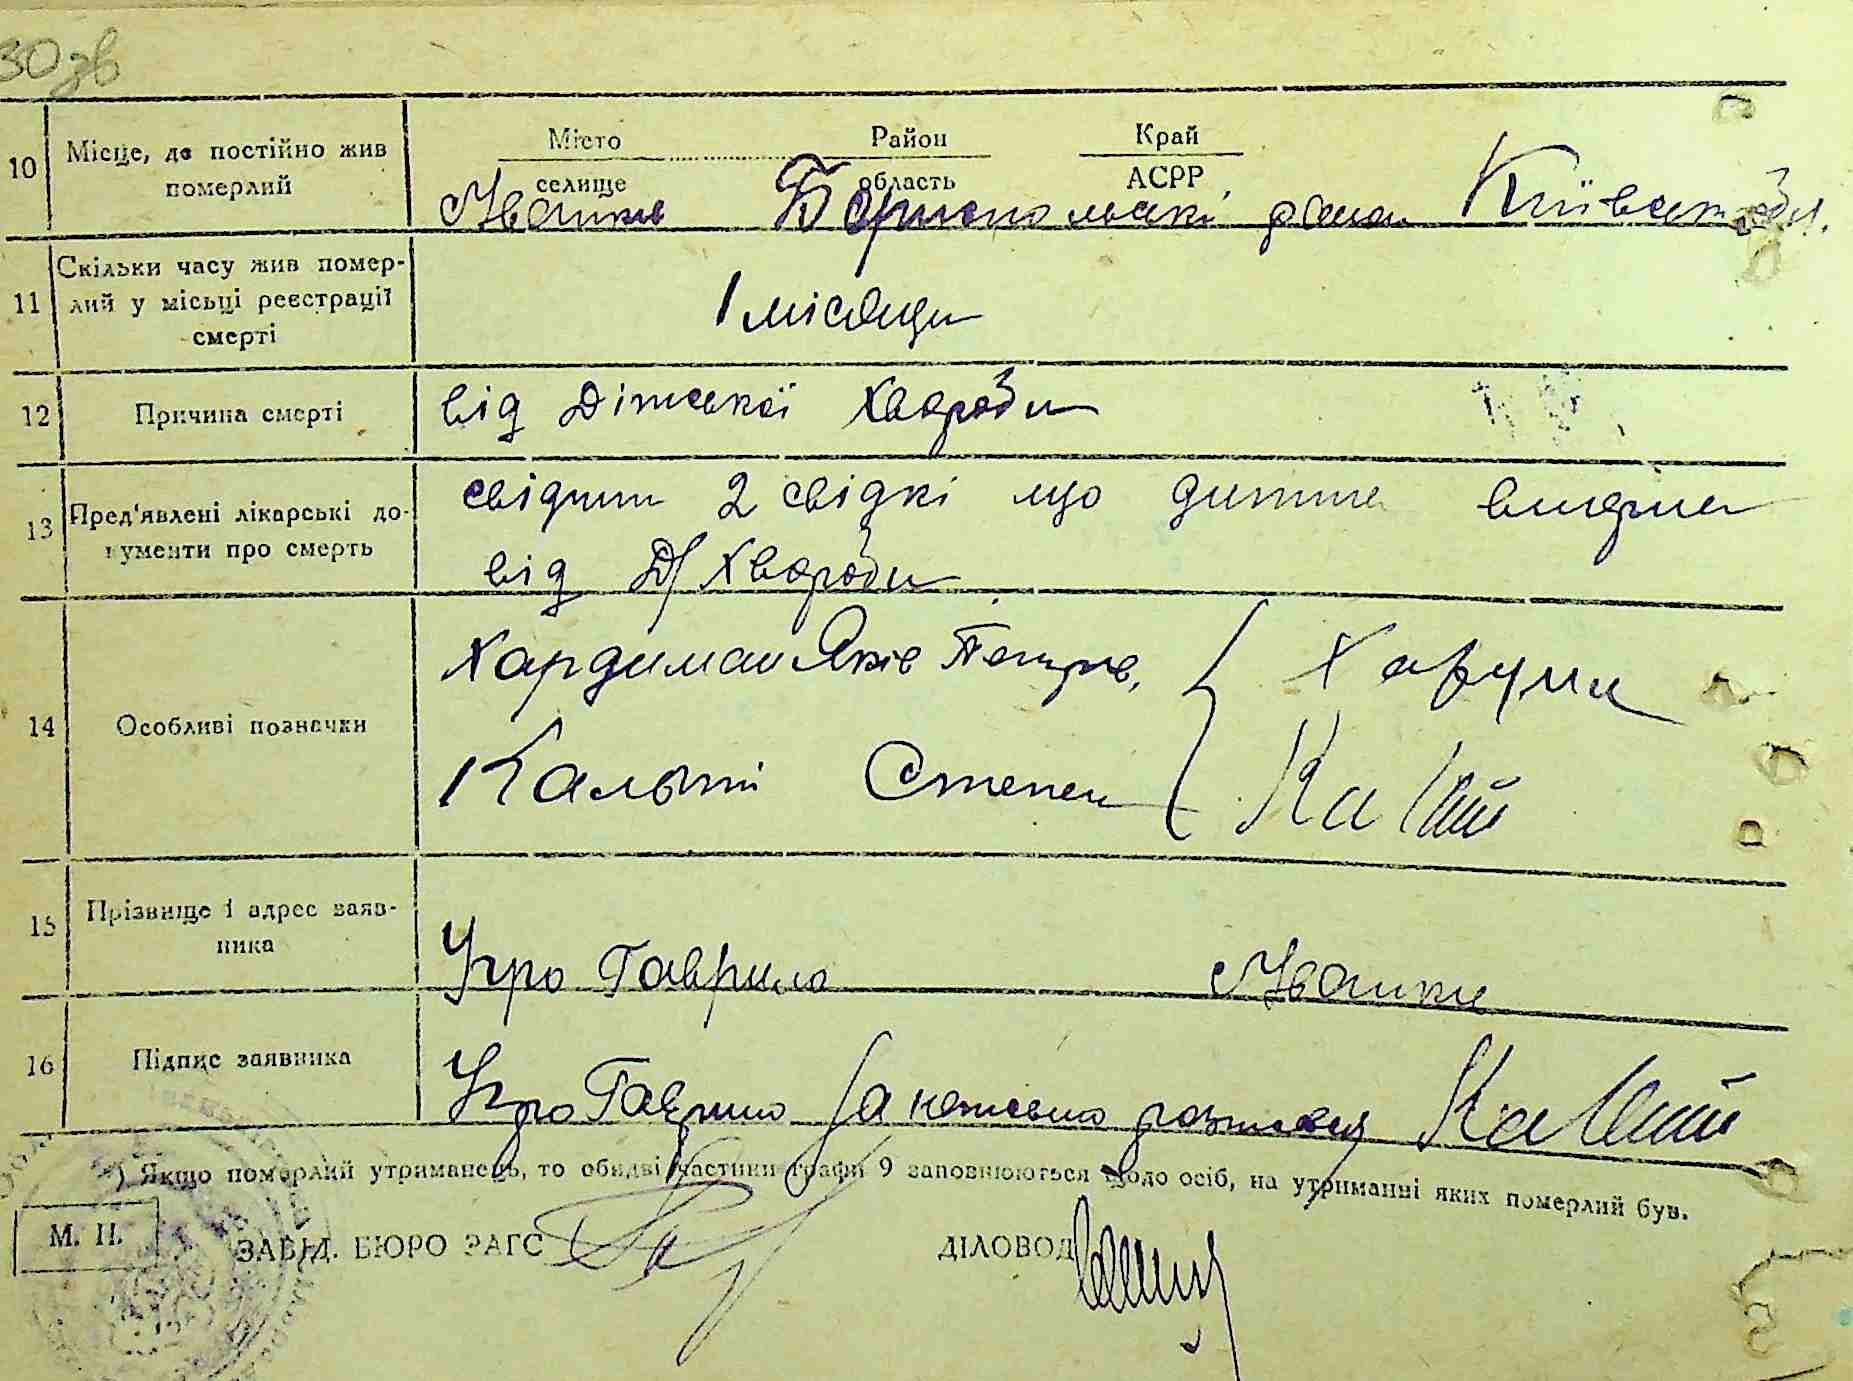 30 зв
Місто Район Край
10 Місце, де постійно жив померлий
селище область АСРР
Іванків Бориспольські район Київськ обл.
11 Скільки часу жив помер-
лий у місці реєстрації
смерті
1 місяць
12 Причина смерті
від Дітської хвороби
13 Пред'явлені лікарські до-
кументи про смерть
свідчит 2 свідкі що дитина вмерла
від Д/хвороби
14 Особливі позначки
Яків Петров,
Степан
15 Прізвище і адрес заяв-
ника
Угро Гаврило Іванків
16 Підпис заявника
Угро Гаврило за
) Якщо померлий утриманець, то обидві частини графи 9 заповнюються щодо осіб, на утриманні яких померлий був.
М. П.
ЗАВІД. БЮРО ЗАГС ДІЛОВОД